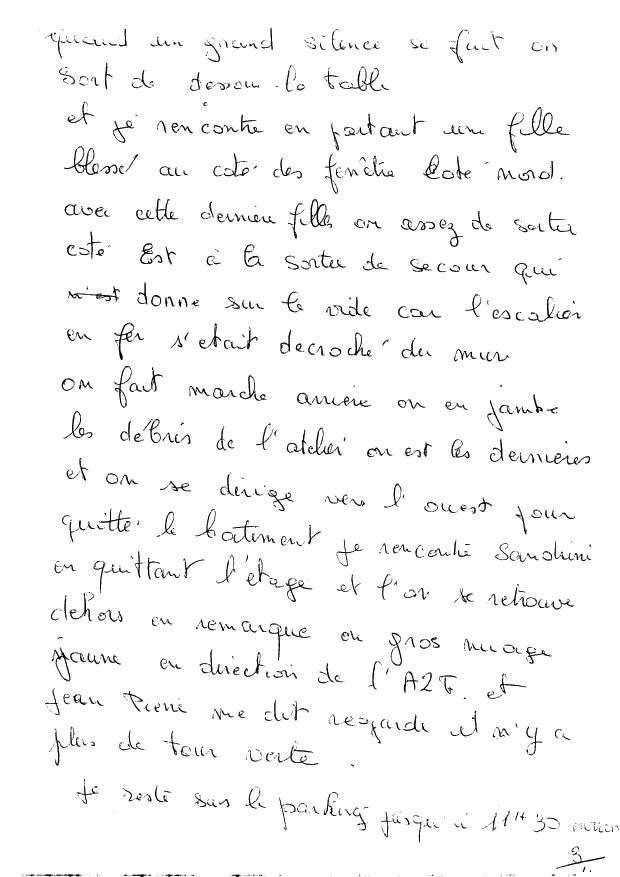 quand un grand silence se fait on
sort de dessou. la table
et je rencontre en partant une fille
blessé au coté des fenêtre coté nord.
avec cette dernière fille on assez de sortir
coté Est à la sortie de secour qui
n'est donne sur le vide car l'escalier
en fer s'etait decroché du mur
on fait marche arrière on en jambe
les débris de l'atelier on est les dernières
et on se dirige vers l'ouest pour
quitté le batiment je rencontre Sandrini
en quittant l'étage et l'on se retrouve
dehors on remarque un gros nuage
jaune en direction de l'AZF. et
Jean Pierre me dit regarde il n'y a
plus de tour verte.
Je reste sur le parking jusqu'à 11H30
3